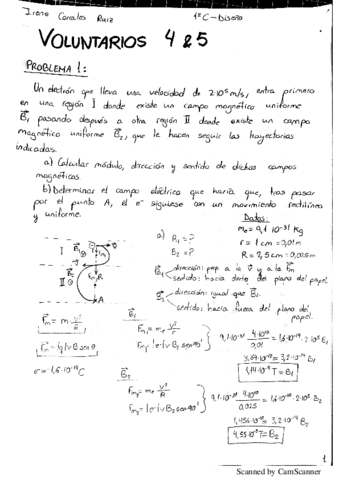 Irene Canales Ruiz
1ºC-Diseño
VOLUNTARIOS 4 & 5
PROBLEMA 1:
Un electrón que lleva una velocidad de 2·10⁵ m/s, entra primero
en una región I donde existe un campo magnético uniforme
B₁, pasando después a otra región II donde existe un campo
magnético uniforme B₂, que le hacen seguir las trayectorias
indicadas.
a) Calcular módulo, dirección y sentido de dichos campos
magnéticos.
b) Determinar el campo eléctrico que haría que, tras pasar
por el punto A, el e⁻ siguiese con un movimiento rectilíneo
y uniforme.
Datos:
mₑ = 9,1·10⁻³¹ Kg
r = 1 cm = 0,01m
R = 2,5 cm = 0,025m
a) B₁ = ?
B₂ = ?
B₁ dirección: perp a la v y a la Fm
sentido: hacia dentro del plano del papel
B₂ dirección: igual que B₁
sentido: hacia fuera del plano del
papel.
I
II
A
Fm = m v²/R
Fm = |q|vB senθ
e = -1,6·10⁻¹⁹C
B₁
Fm₁ = mₑ v²/r
Fm₁ = |e|vB₁ sen90º
9,1·10⁻³¹ 4·10¹⁰/0,01 = 1,6·10⁻¹⁹·2·10⁵ B₁
1,14·10⁻⁴ T = B₁
B₂
Fm₂ = mₑ v²/R
Fm₂ = |e|vB₂ sen90º
9,1·10⁻³¹ 4·10¹⁰/0,025 = 1,6·10⁻¹⁹·2·10⁵·B₂
4,55·10⁻⁵ T = B₂
1
Scanned by CamScanner